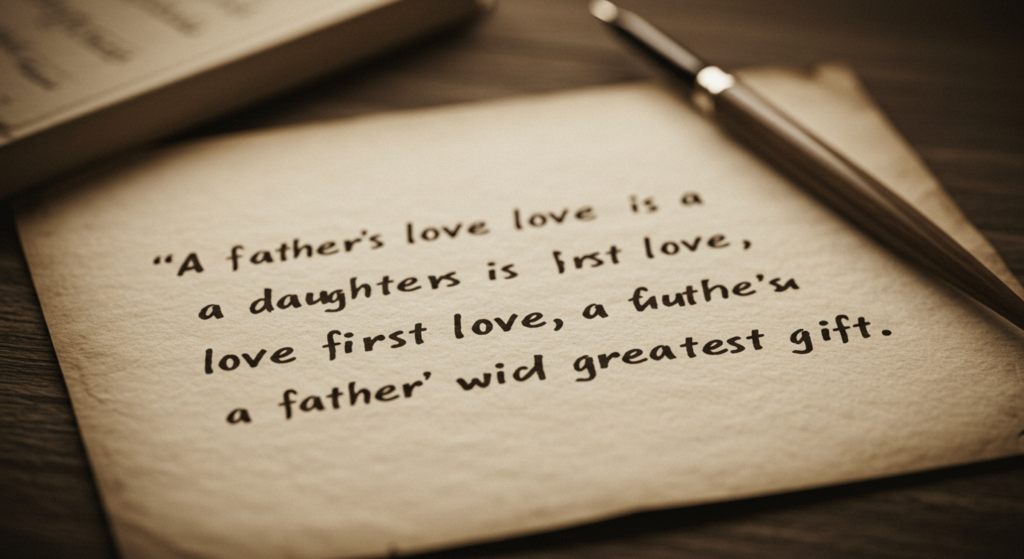 “A father's love love is a
a daughters is first love,
love first love, a Guthe's
a father' wid greatest gift.